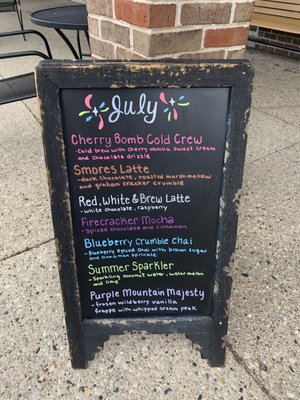 July
Cherry Bomb Cold Crew
- Cold brew with cherry vanilla sweet cream
and chocolate drizzle
Smores Latte
- dark chocolate, toasted marshmallow
and graham cracker crumble
Red, White & Brew Latte
- white chocolate, raspberry
Firecracker Mocha
- spiced chocolate and cinnamon
Blueberry Crumble Chai
- Blueberry spiced chai with brown sugar
and cinnamon sprinkle
Summer Sparkler
- Sparkling coconut water, watermelon
and lime
Purple Mountain Majesty
- frozen wildberry vanilla
frappe with whipped cream peak